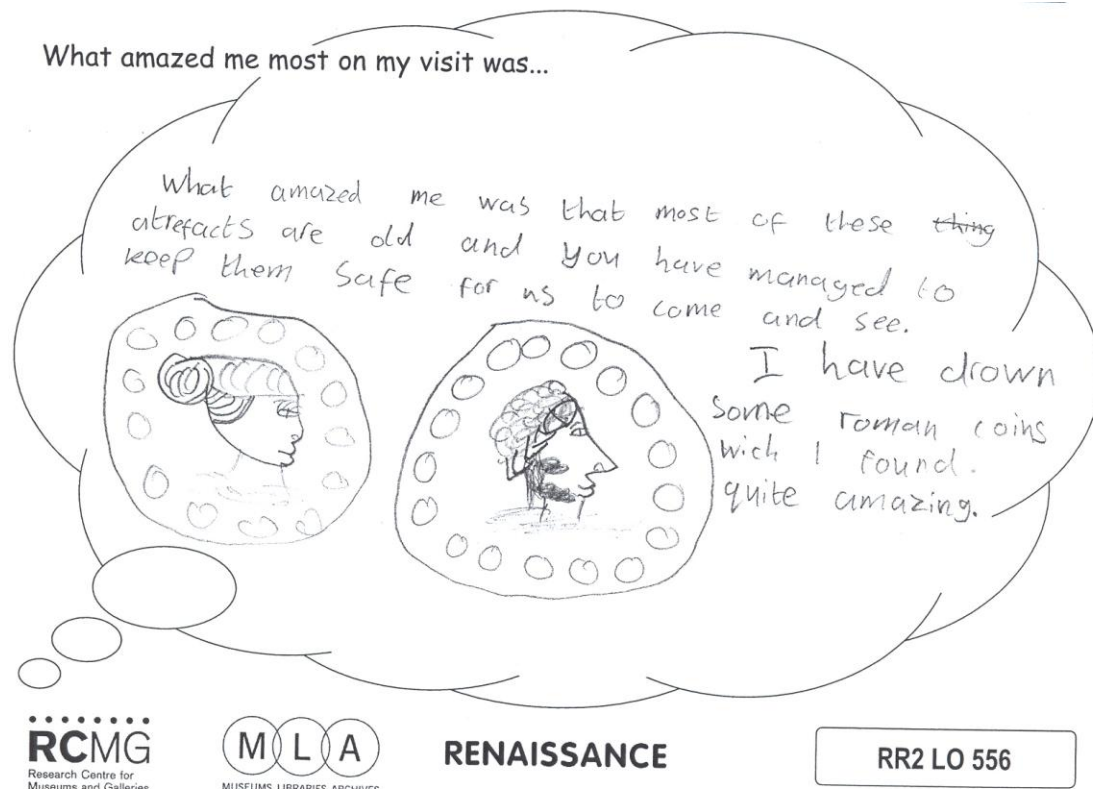 What amazed me most on my visit was...
What amazed me was that most of these thing
atrefacts are old and you have managed to
keep them safe for us to come and see.
I have drown
some roman coins
wich I found.
quite amazing.
RCMG
Research Centre for
Museums and Galleries
MLA
MUSEUMS LIBRARIES ARCHIVES
RENAISSANCE
RR2 LO 556